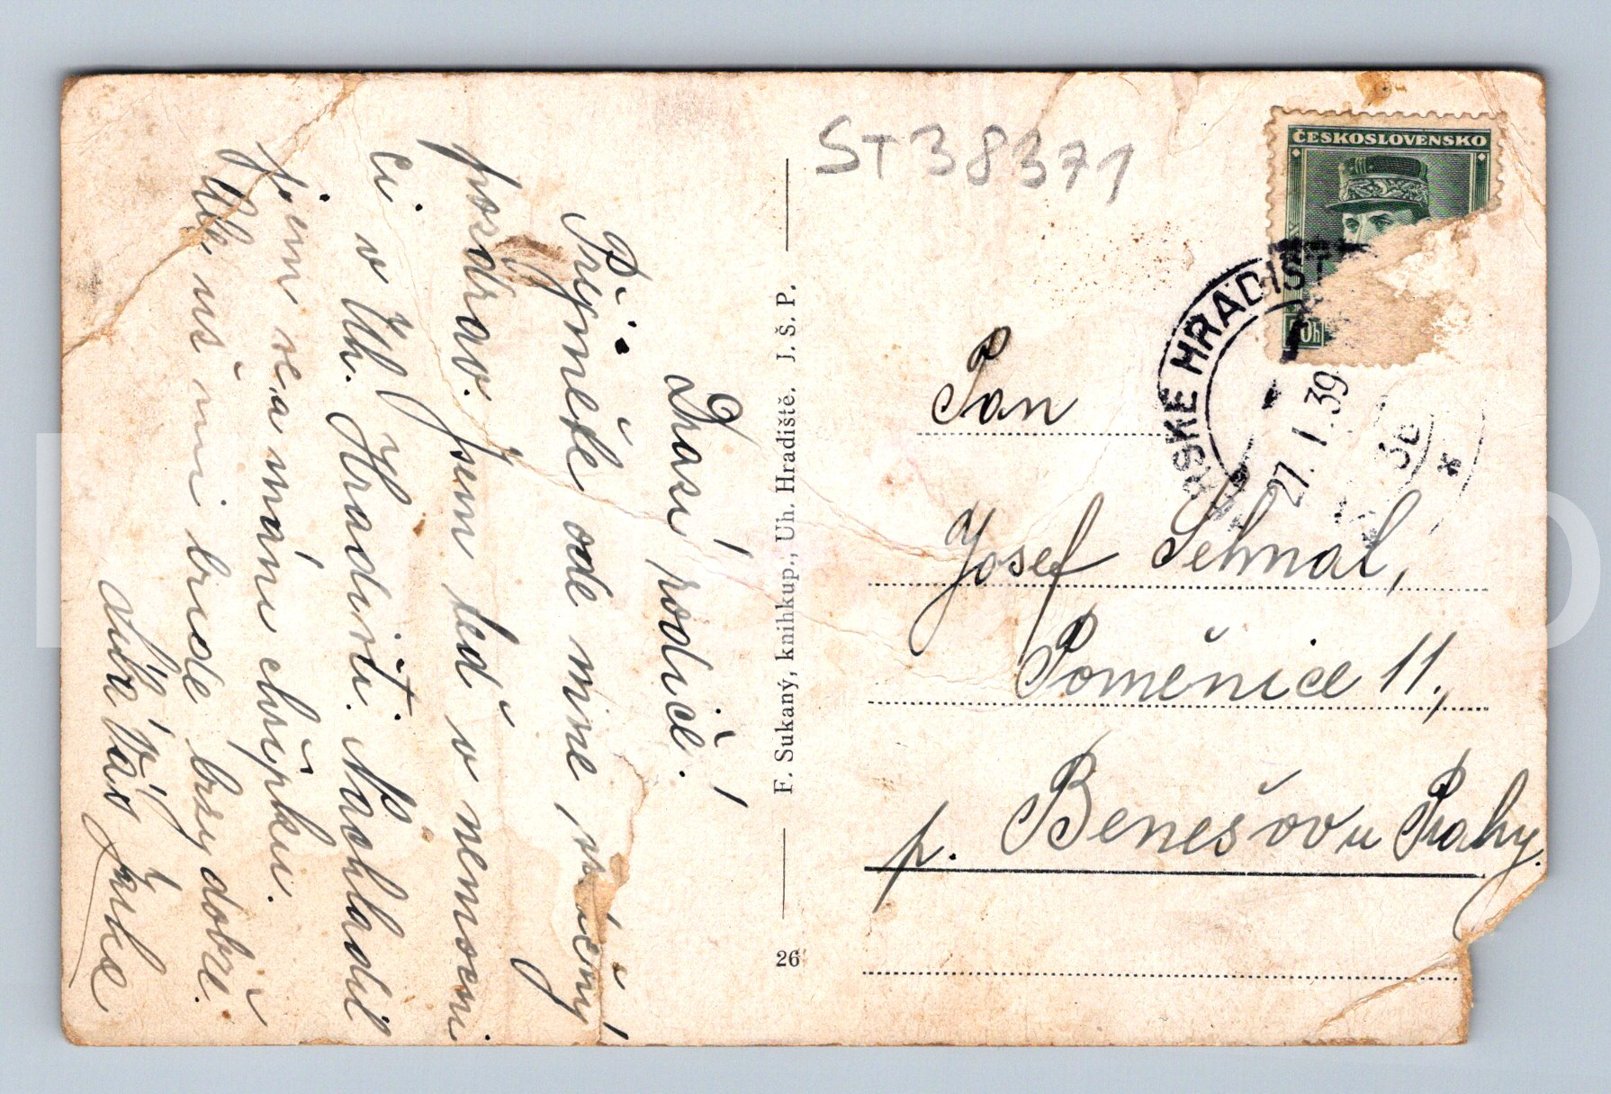 Drazí rodiče!
Přijměte ode mne srdečný
pozdrav. Jsem teď v nemocni
ci v Uh. Hradišti. Nachladil
jsem se a mám chřipku.
Ale už mi bude brzy dobře.
Líbá Vás
F. Sukaný, knihkup., Uh. Hradiště. J. Š. P.
26
ST38371
ČESKOSLOVENSKO
SKÉ HRADIŠT
27. I. 39
Pan
Josef Sehnal,
Poměnice 11.,
p. Benešov u Prahy.